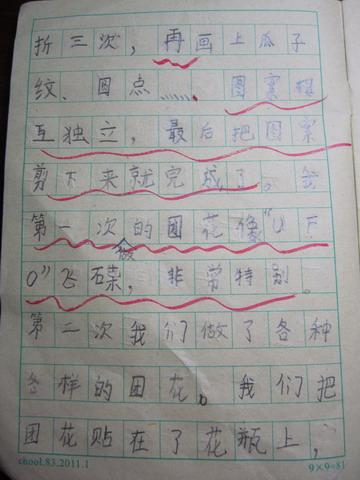 折三次，再画上瓜子
纹、圆点……。图案相
互独立，最后把图案
剪下来就完成了。我
第一次做的团花像“UF
O”飞碟，非常特别。
第二次我们做了各种
各样的团花。我们把
团花贴在了花瓶上，
chool.83.2011.1 9×9=81